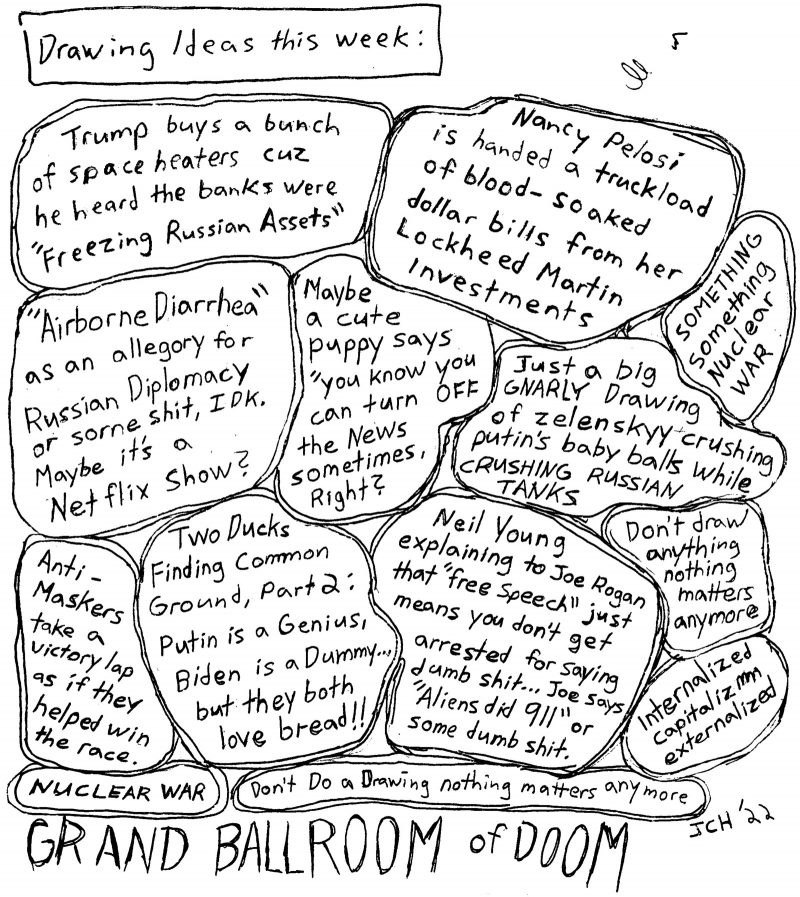 Drawing Ideas this week:
Trump buys a bunch
of space heaters cuz
he heard the banks were
"Freezing Russian Assets"
Nancy Pelosi
is handed a truckload
of blood-soaked
dollar bills from her
Lockheed Martin
Investments
SOMETHING
something
Nuclear
WAR
"Airborne Diarrhea"
as an allegory for
Russian Diplomacy
or some shit, IDK.
Maybe it's a
Netflix Show?
Maybe
a cute
puppy says
"you know you
can turn OFF
the News
sometimes,
Right?
Just a big
GNARLY Drawing
of zelenskyy crushing
putin's baby balls while
CRUSHING RUSSIAN
TANKS
Anti-
Maskers
take a
victory lap
as if they
helped win
the race.
Two Ducks
Finding Common
Ground, Part 2:
Putin is a Genius,
Biden is a Dummy...
but they both
love bread!!
Neil Young
explaining to Joe Rogan
that "free speech" just
means you don't get
arrested for saying
dumb shit... Joe says
"Aliens did 911" or
some dumb shit.
Don't draw
anything
nothing
matters
anymore
Internalized
capitalizmm
externalized
NUCLEAR WAR
Don't Do a Drawing nothing matters anymore
JCH '22
GRAND BALLROOM of DOOM